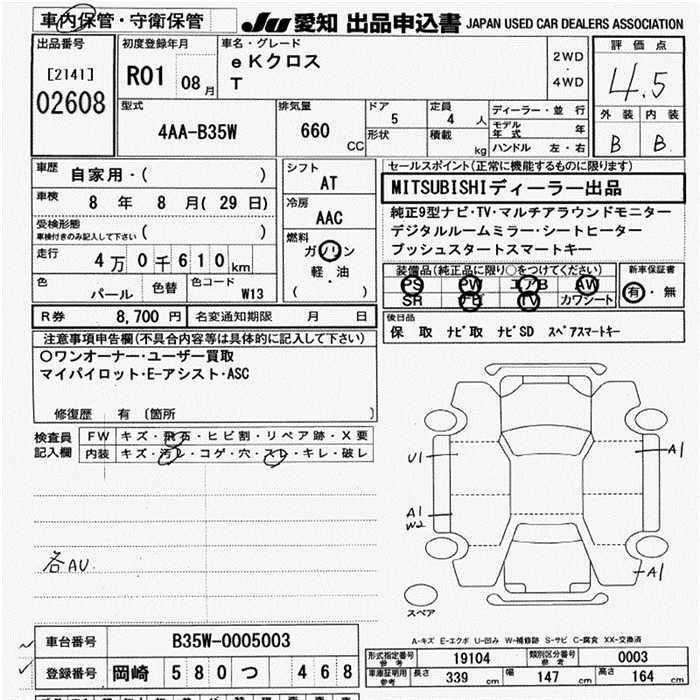 車内保管・守衛保管
JU 愛知 出品申込書 JAPAN USED CAR DEALERS ASSOCIATION
出品番号
[2141]
02608
初度登録年月
R01 08月
車名・グレード
eKクロス
T
2WD
・
4WD
評価点
4.5
外装 内装
B B
型式
4AA-B35W
排気量
660 CC
ドア
5
形状
定員
4 人
積載
kg
ディーラー・並行
モデル年式 年
ハンドル 左・右
車歴
自家用・( )
車検
8 年 8 月( 29 日)
受検形態
車検付きのみ記入して下さい ( )
走行
4万0千610km
色
パール
色替
色コード
W13
シフト
AT
冷房
AAC
燃料
ガソリン
軽・油
( )
セールスポイント(正常に機能するものに限ります)
MITSUBISHIディーラー出品
純正9型ナビ・TV・マルチアラウンドモニター
デジタルルームミラー・シートヒーター
プッシュスタートスマートキー
装備品(純正品に限り○をつけてください)
PS PW エアB AW
SR ナビ TV カワシート
新車保証書
有・無
R券 8,700 円
名変通知期限 月 日
後日品
保 取 ナビ取 ナビSD スペアスマートキー
注意事項申告欄(不具合内容等は具体的に記入して下さい)
○ワンオーナー・ユーザー買取
マイパイロット・E-アシスト・ASC
修復歴 有 〔箇所 〕
検査員
記入欄
FW キズ・飛石・ヒビ割・リペア跡・X要
内装 キズ・汚レ・コゲ・穴・スレ・キレ・破レ
各AU
U1
A1
A1
W2
A1
スペア
A-キズ E-エクボ U-凹み W-補修跡 S-サビ C-腐食 XX-交換済
車台番号 B35W-0005003
登録番号 岡崎 580 つ 468
形式指定番号
参考
19104
類別区分番号
参考
0003
車庫証明用
参考
長さ 339 cm
幅 147 cm
高さ 164 cm